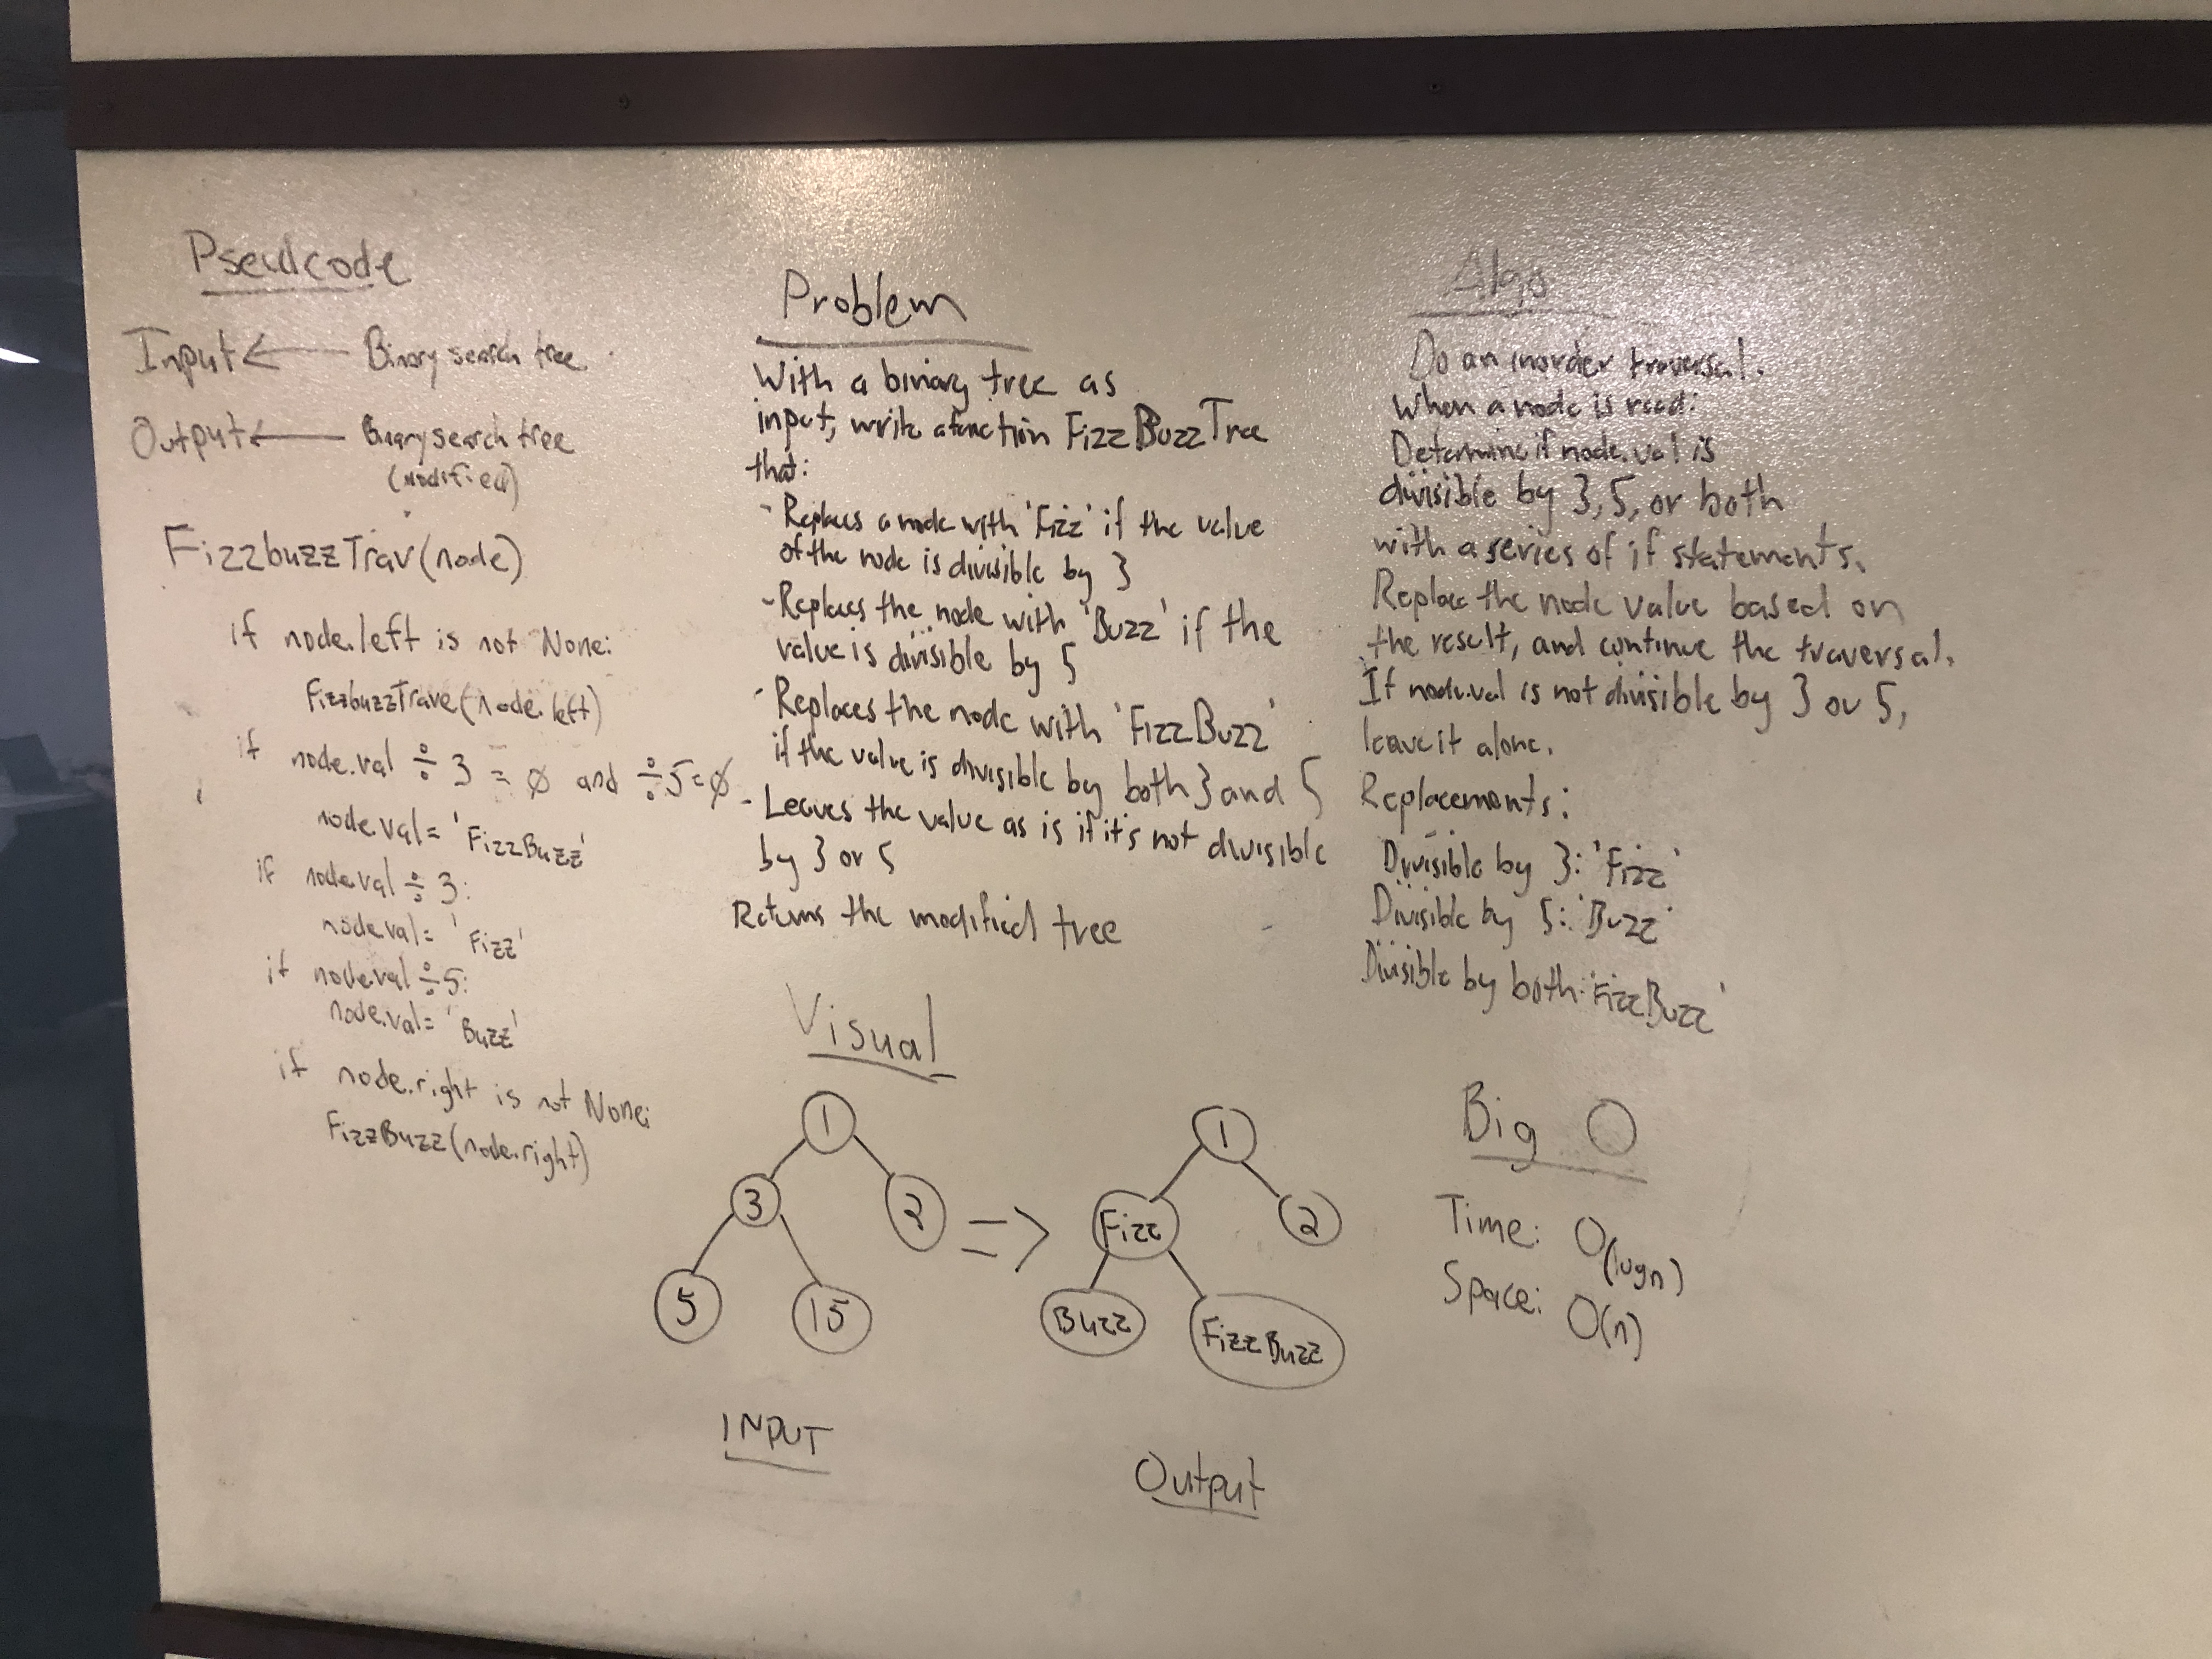 Pseudcode
Input ← Binary search tree
Output ← Binary search tree
(modified)
FizzbuzzTrav(node)
if node.left is not None:
FizzbuzzTrave(node.left)
if node.val ÷ 3 = 0 and ÷5=0
node.val= 'FizzBuzz'
if node.val ÷ 3:
node.val= 'Fizz'
if node.val ÷5:
node.val= 'Buzz'
if node.right is not None:
FizzBuzz(node.right)
Problem
With a binary tree as
input, write a function FizzBuzzTree
that:
- Replaces a node with 'Fizz' if the value
of the node is divisible by 3
- Replaces the node with 'Buzz' if the
value is divisible by 5
- Replaces the node with 'FizzBuzz'
if the value is divisible by both 3 and 5
- Leaves the value as is if it's not divisible
by 3 or 5
Returns the modified tree
Visual
1
3
2
5
15
INPUT
=>
1
Fizz
2
Buzz
FizzBuzz
Output
Algo
Do an inorder traversal.
When a node is read:
Determine if node.val is
divisible by 3, 5, or both
with a series of if statements.
Replace the node value based on
the result, and continue the traversal.
If node.val is not divisible by 3 or 5,
leave it alone.
Replacements:
Divisible by 3: 'Fizz'
Divisible by 5: 'Buzz'
Divisible by both: 'FizzBuzz'
Big O
Time: O(logn)
Space: O(n)